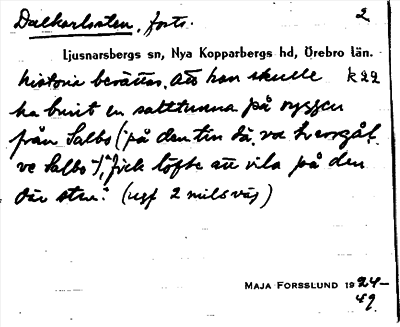 Dalkarlssten, forts. 2
Ljusnarsbergs sn, Nya Kopparbergs hd, Örebro län.
historia berättas, att han skulle k 22
ha burit en salttunna på ryggen
från Salbo (på den tin då, va
ve Salbo -), "fick löfte att vila på den
där sten." (ugf 2 mils väg)
MAJA FORSSLUND 1924-
49.